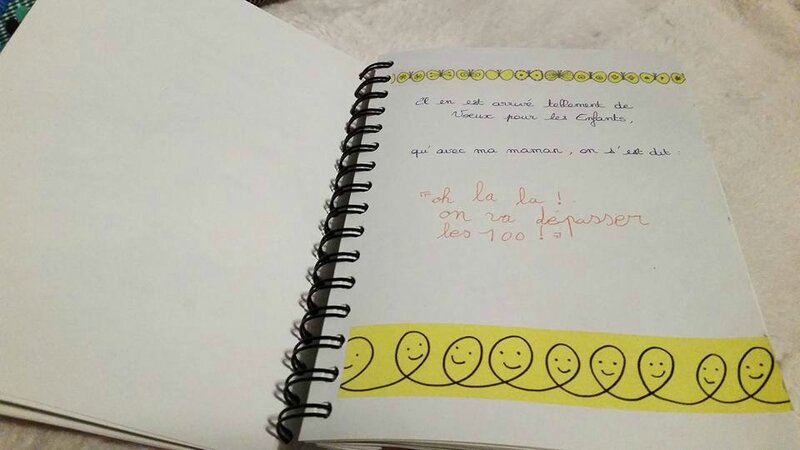 Il en est arrivé tellement de
Voeux pour les Enfants,
qu'avec ma maman, on s'est dit :
"oh la la !
on va dépasser
les 100 ! "